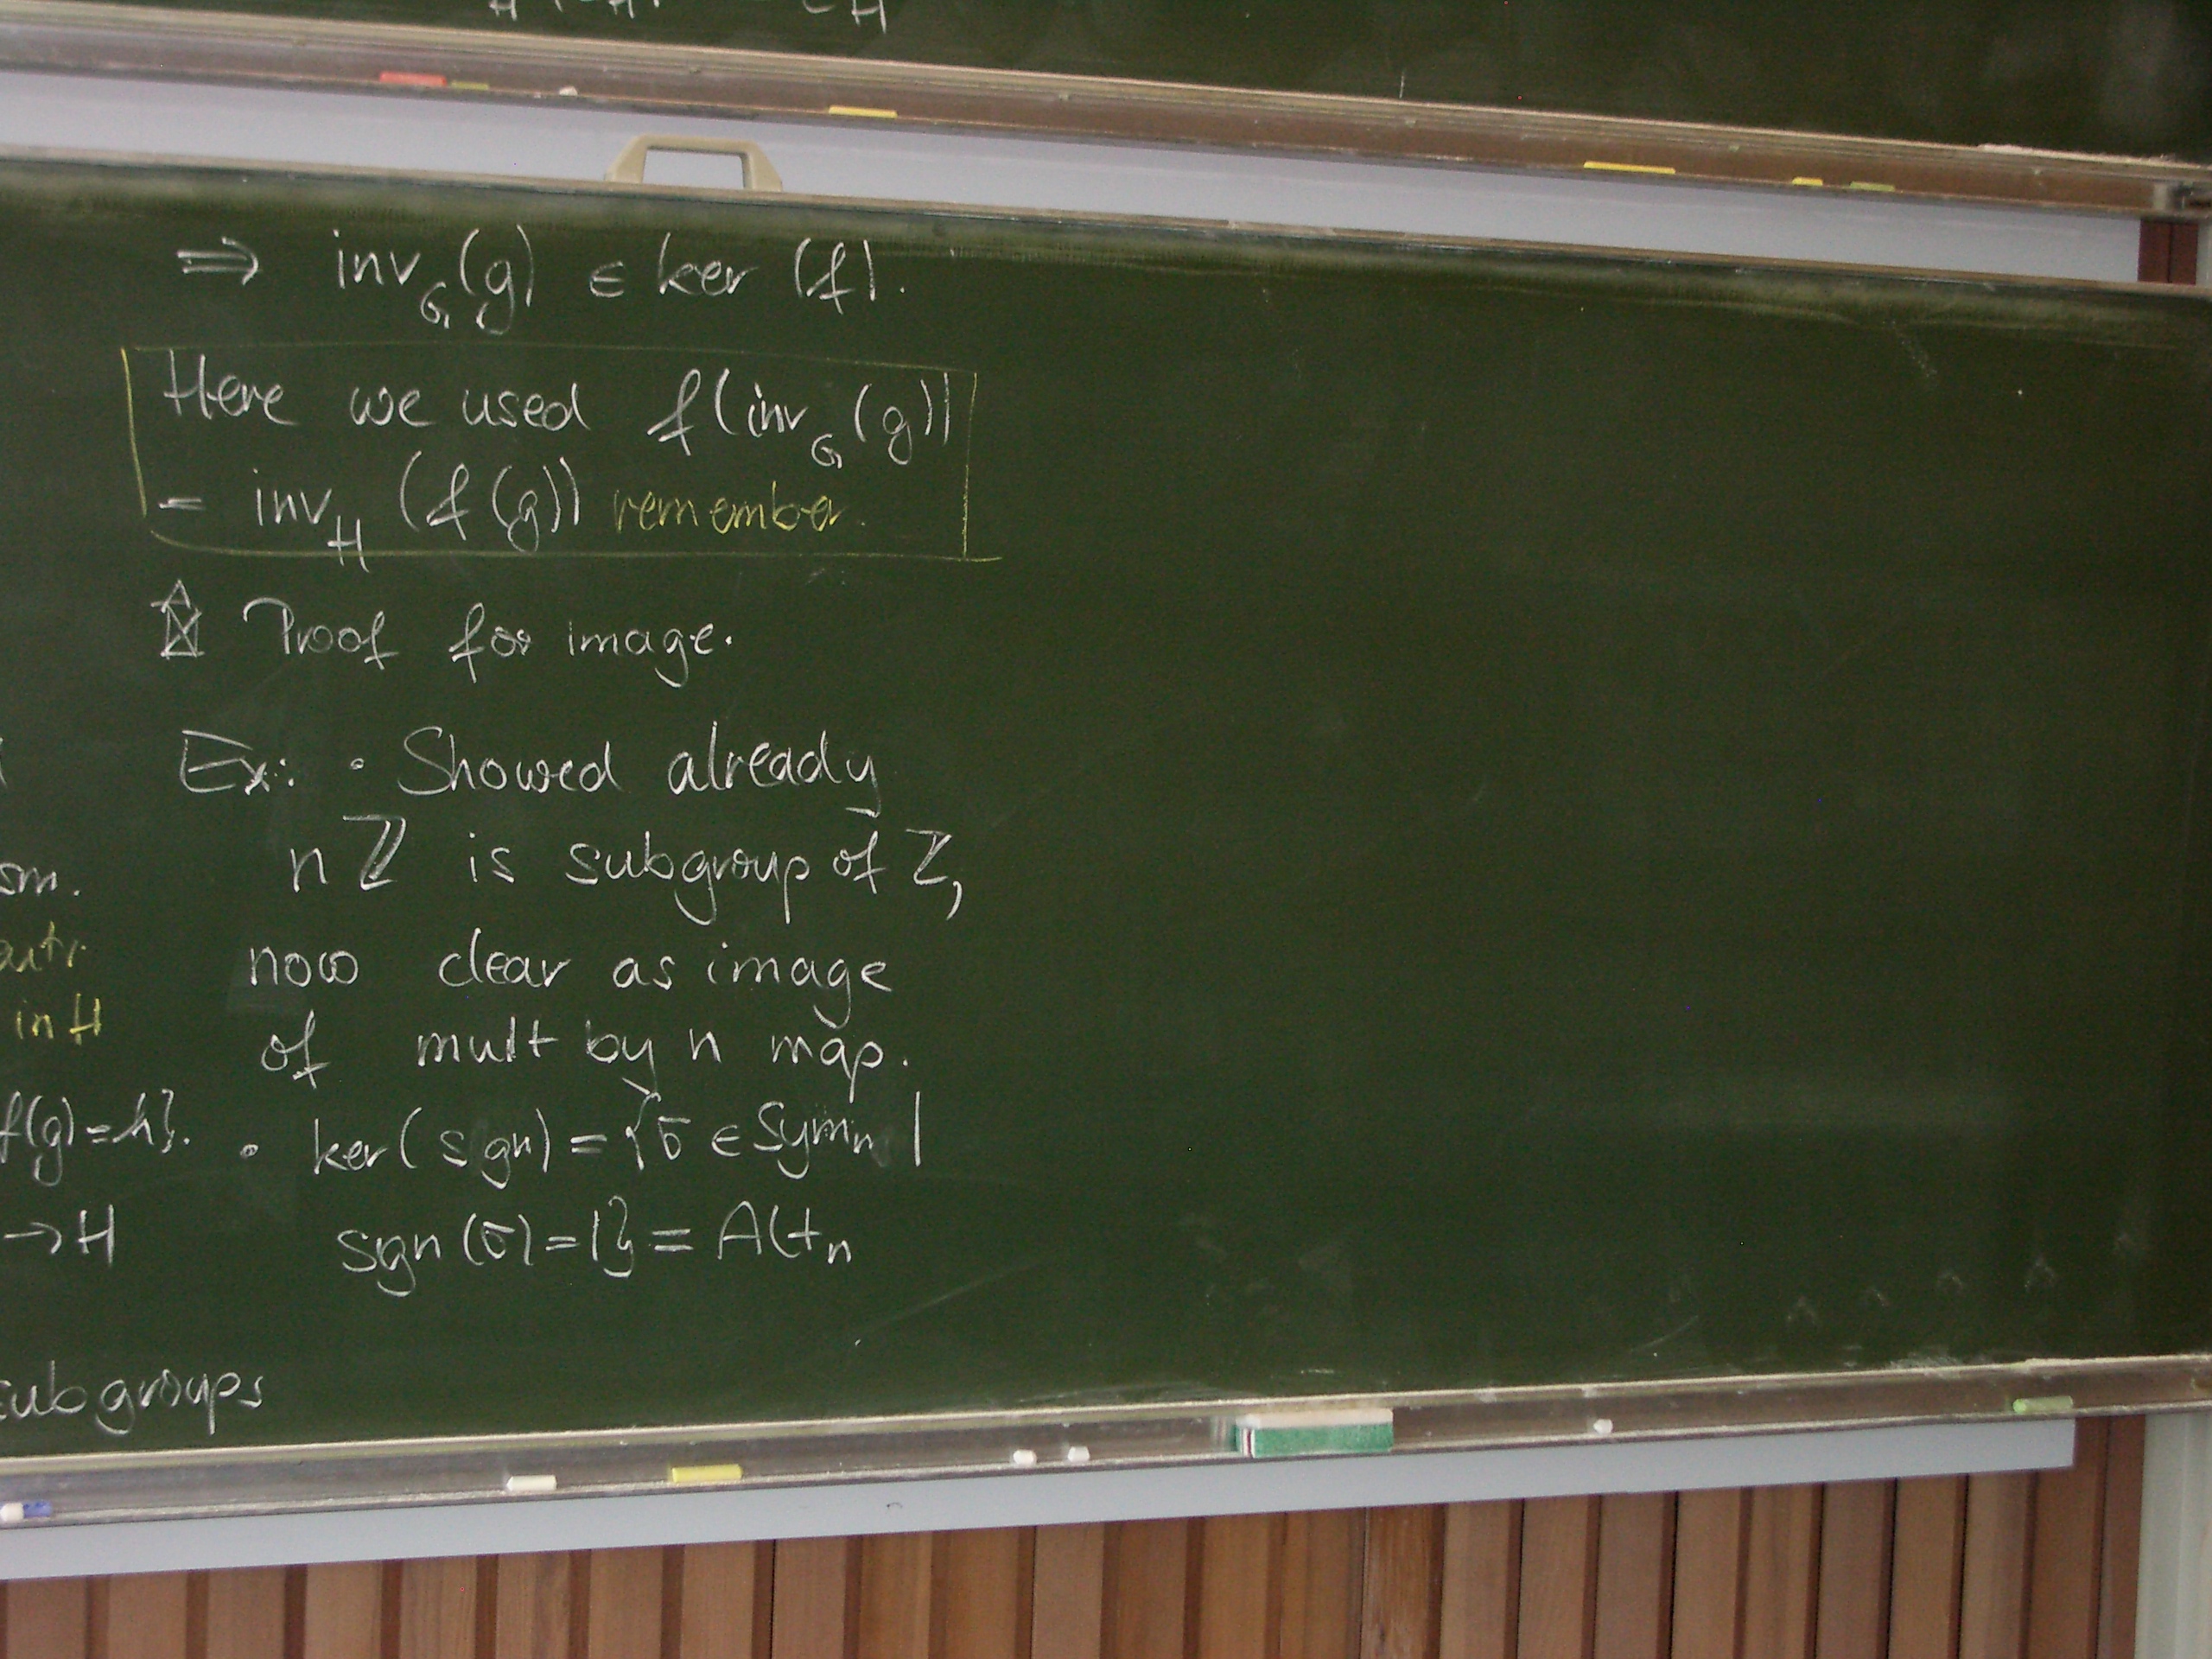 ⇒ inv_G(g) ∈ ker (f).
Here we used f(inv_G(g))
= inv_H (f(g)) remember.
Proof for image.
Ex: • Showed already
nℤ is subgroup of ℤ,
now clear as image
of mult by n map.
• ker(sgn) = {σ ∈ Sym_n |
sgn(σ)=1} = Alt_n
sm.
in H
f(g)=h}.
→H
subgroups